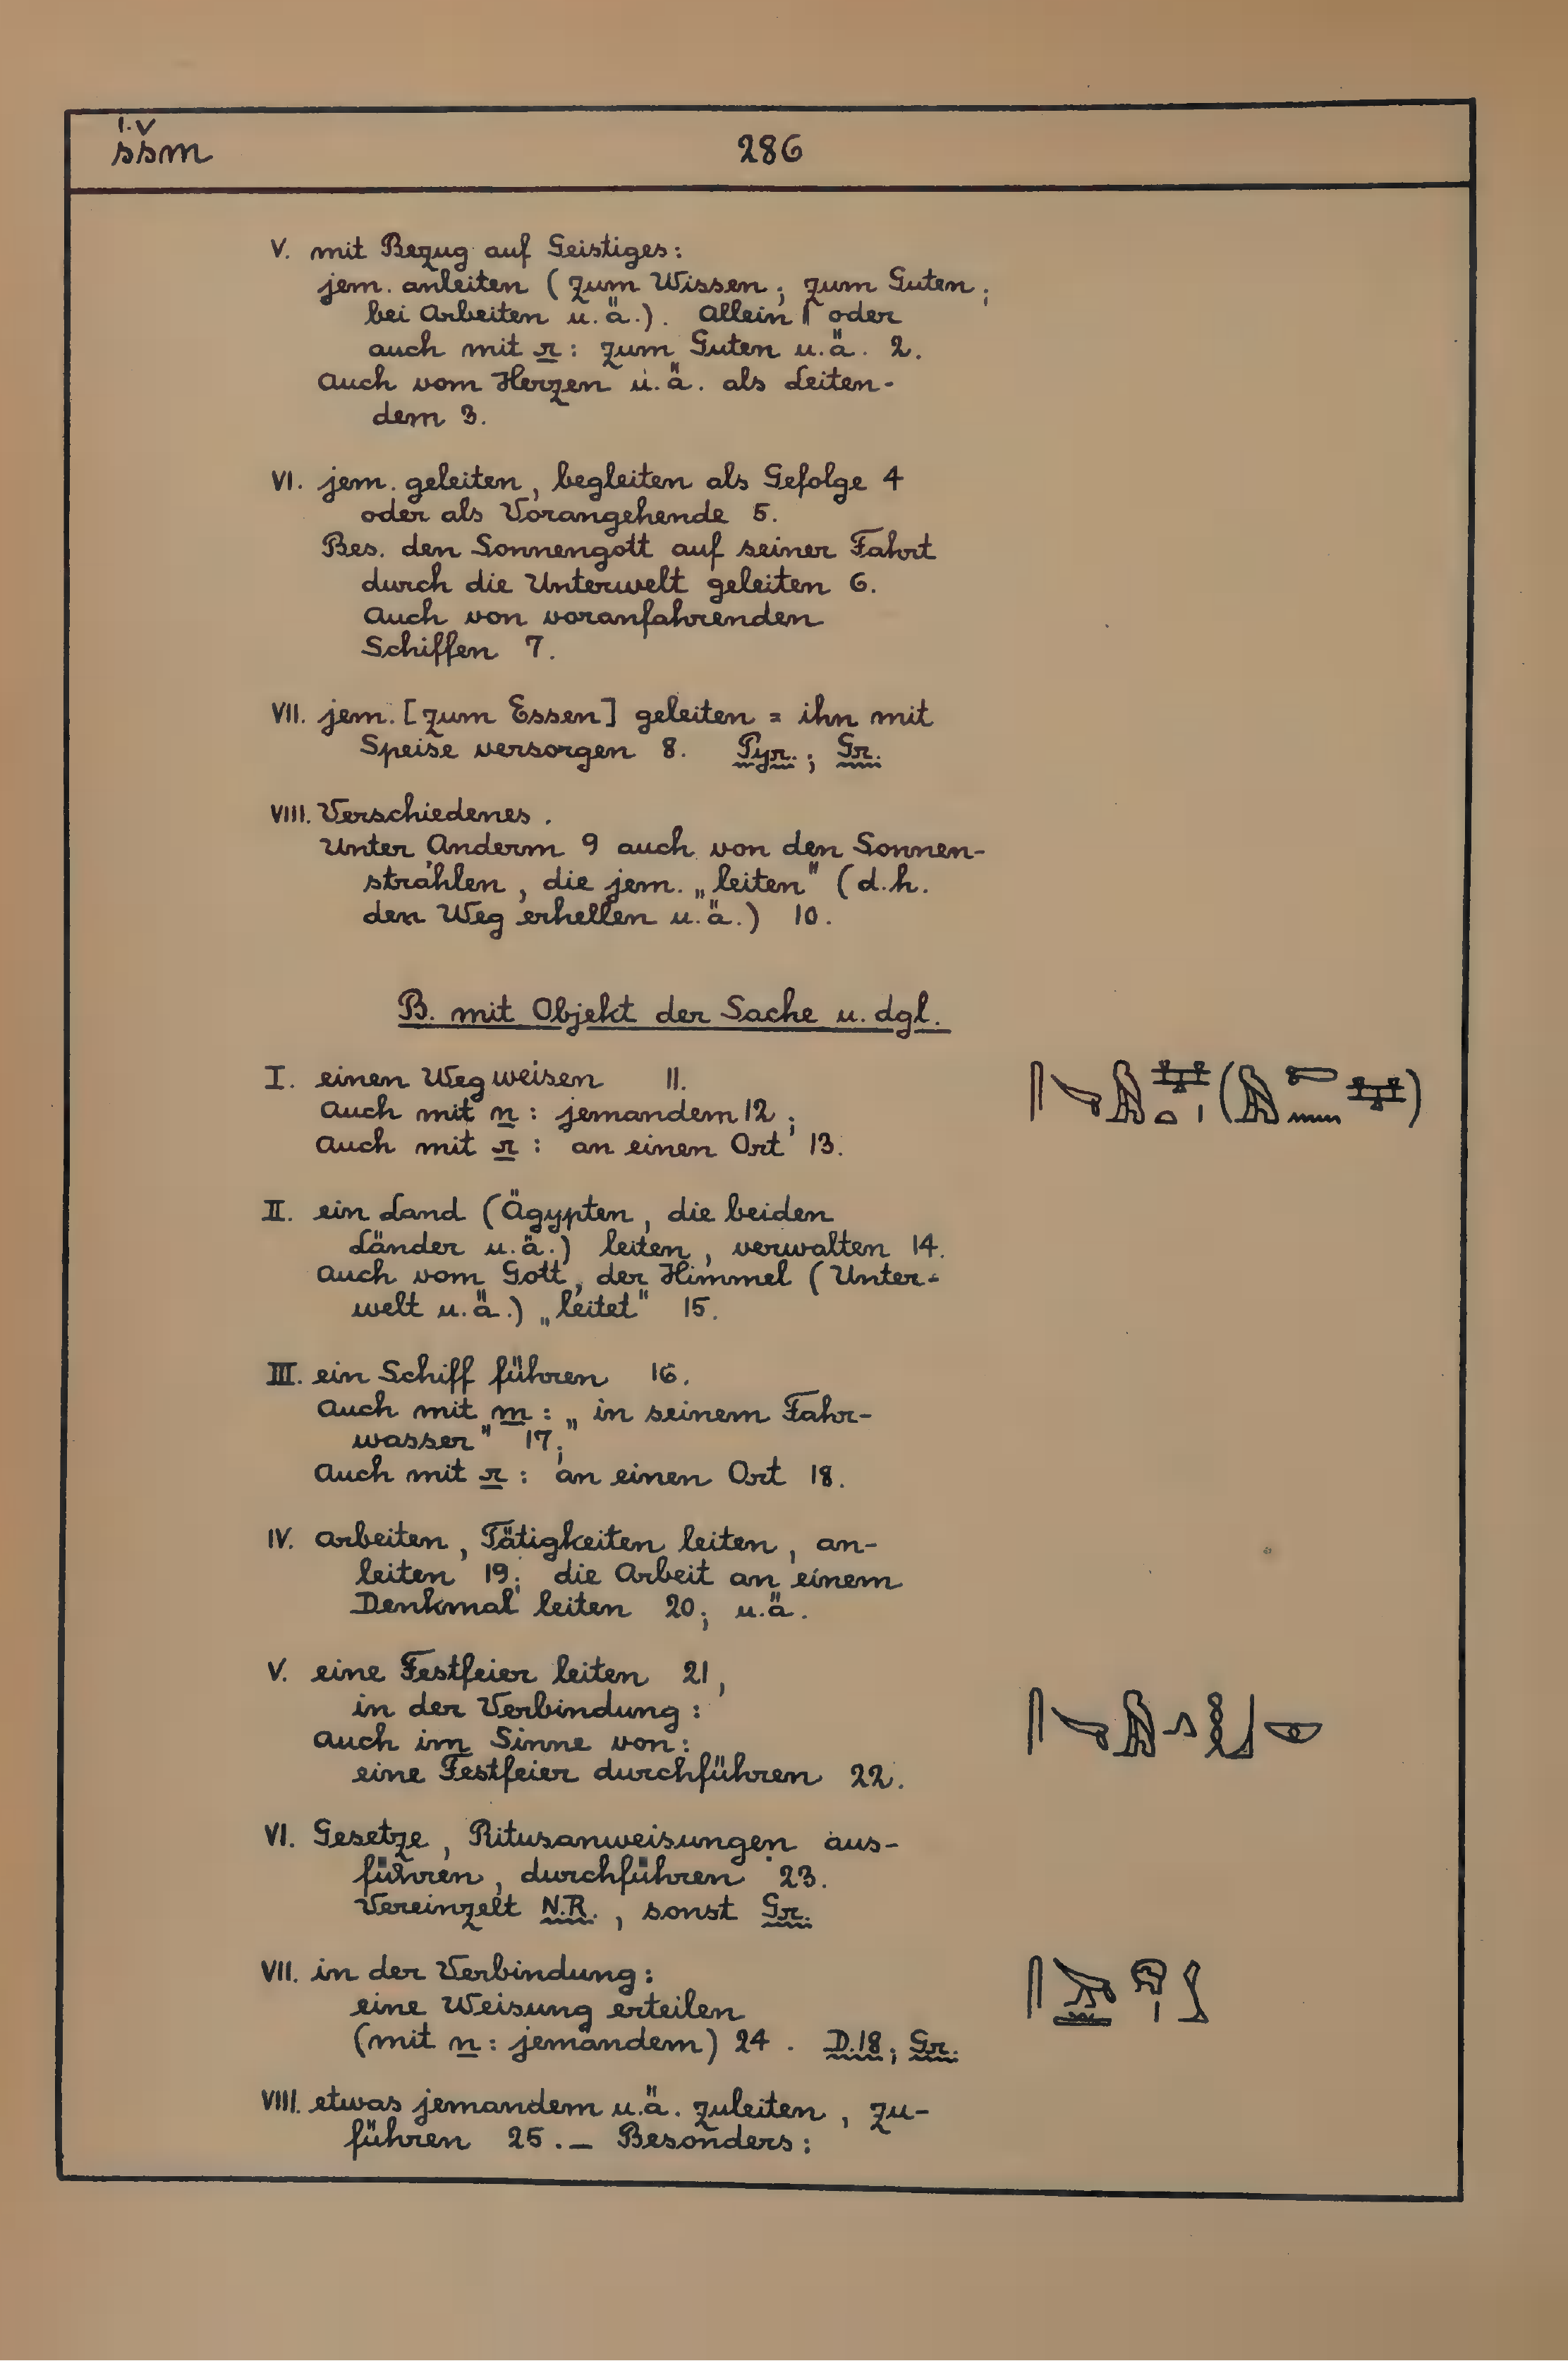 sšm
286
V. mit Bezug auf Geistiges:
jem. anleiten (zum Wissen; zum Guten;
bei Arbeiten u.ä.). Allein 1 oder
auch mit r: zum Guten u.ä. 2.
Auch vom Herzen u.ä. als Leiten-
dem 3.
VI. jem. geleiten, begleiten als Gefolge 4
oder als Vorangehende 5.
Bes. den Sonnengott auf seiner Fahrt
durch die Unterwelt geleiten 6.
Auch von voranfahrenden
Schiffen 7.
VII. jem. [zum Essen] geleiten = ihn mit
Speise versorgen 8. Pyr.; Gr.
VIII. Verschiedenes.
Unter Anderm 9 auch von den Sonnen-
strahlen, die jem. „leiten" (d.h.
den Weg erhellen u.ä.) 10.
B. mit Objekt der Sache u. dgl.
I. einen Weg weisen 11.
Auch mit n: jemandem 12;
Auch mit r: an einen Ort 13.
II. ein Land (Ägypten, die beiden
Länder u.ä.) leiten, verwalten 14.
Auch vom Gott, der Himmel (Unter-
welt u.ä.) „leitet" 15.
III. ein Schiff führen 16.
Auch mit m: „in seinem Fahr-
wasser" 17;
Auch mit r: an einen Ort 18.
IV. Arbeiten, Tätigkeiten leiten, an-
leiten 19; die Arbeit an einem
Denkmal leiten 20; u.ä.
V. eine Festfeier leiten 21,
in der Verbindung:
Auch im Sinne von:
eine Festfeier durchführen 22.
VI. Gesetze, Ritusanweisungen aus-
führen, durchführen 23.
Vereinzelt N.R., sonst Gr.
VII. in der Verbindung:
eine Weisung erteilen
(mit n: jemandem) 24. D.18; Gr.
VIII. etwas jemandem u.ä. zuleiten, zu-
führen 25. — Besonders: